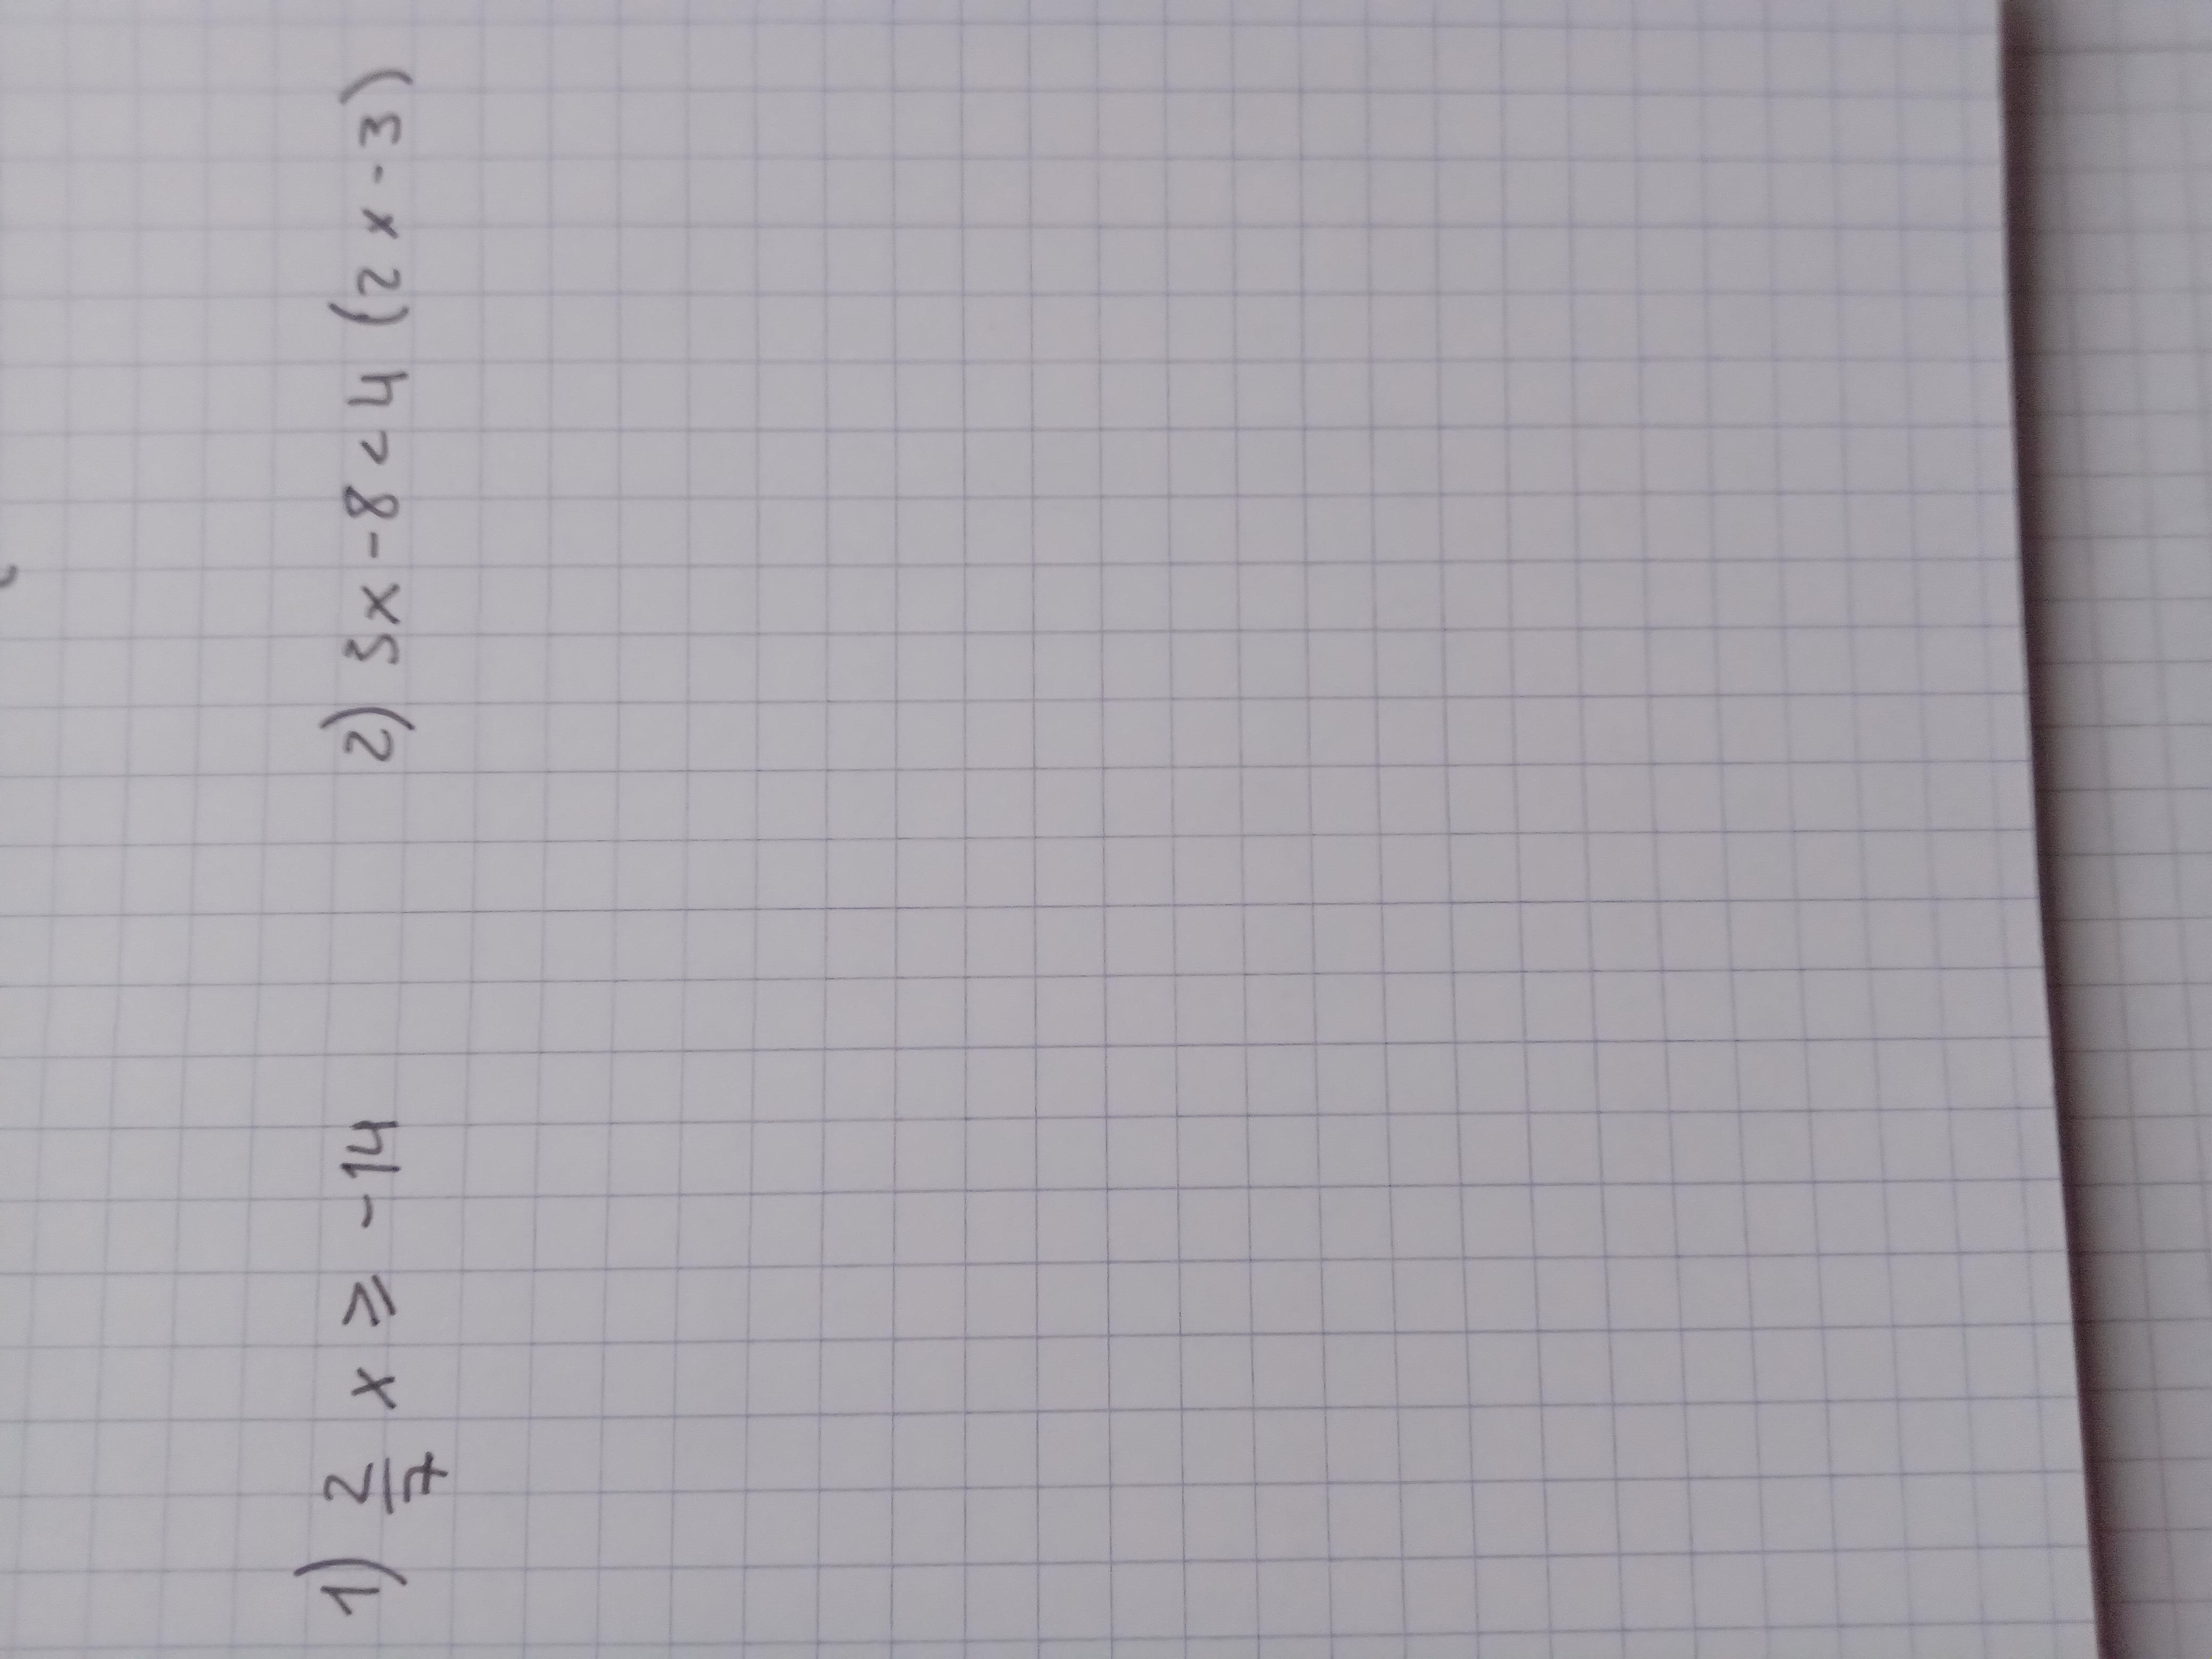 1) 2/7 x ⩾ -14 2) 3x - 8 < 4 (2x - 3)